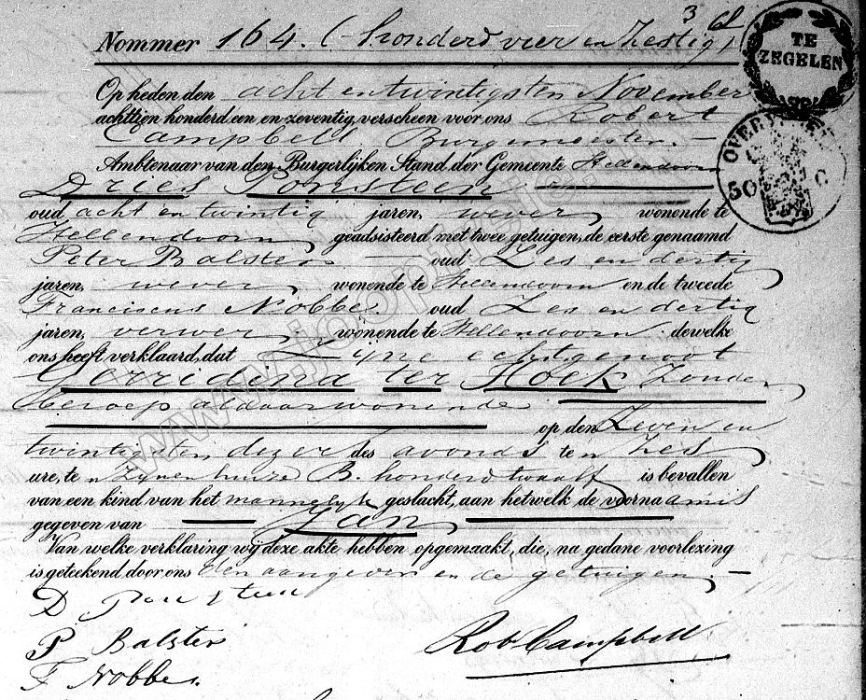 3 Cl
Nommer 164. (honderd vier en zestig)
TE
ZEGELEN
Op heden den acht en twintigsten November
achttien honderd een en zeventig, verscheen voor ons Robert
Campbell Burgemeester. –
OVERIJSSEL
50 C
Ambtenaar van den Burgerlijken Stand der Gemeente Hellendoorn
Dries Ponsteen
oud acht en twintig jaren, wever, wonende te
Hellendoorn, geadsisteerd met twee getuigen, de eerste genaamd
Peter Balster oud Zes en dertig
jaren, wever, wonende te Hellendoorn en de tweede
Franciscus Nobbe. oud Zes en dertig
jaren, verwer, wonende te Hellendoorn dewelke
ons heeft verklaard, dat Zijne echtgenoot
Gerridina ter Hoek Zonder
beroep aldaar wonende
op den Zeven en
twintigsten, dezer des avonds te n Zes
ure, te n Zijnen huize B. honderd twaalf is bevallen
van een kind van het mannelijk geslacht, aan hetwelk de voornaam is
gegeven van Jan
Van welke verklaring wij deze akte hebben opgemaakt, die, na gedane voorlezing
is geteekend door ons den aangever en de getuigen. –
D Ponsteen
P Balster
Rob Campbell
F Nobbe.